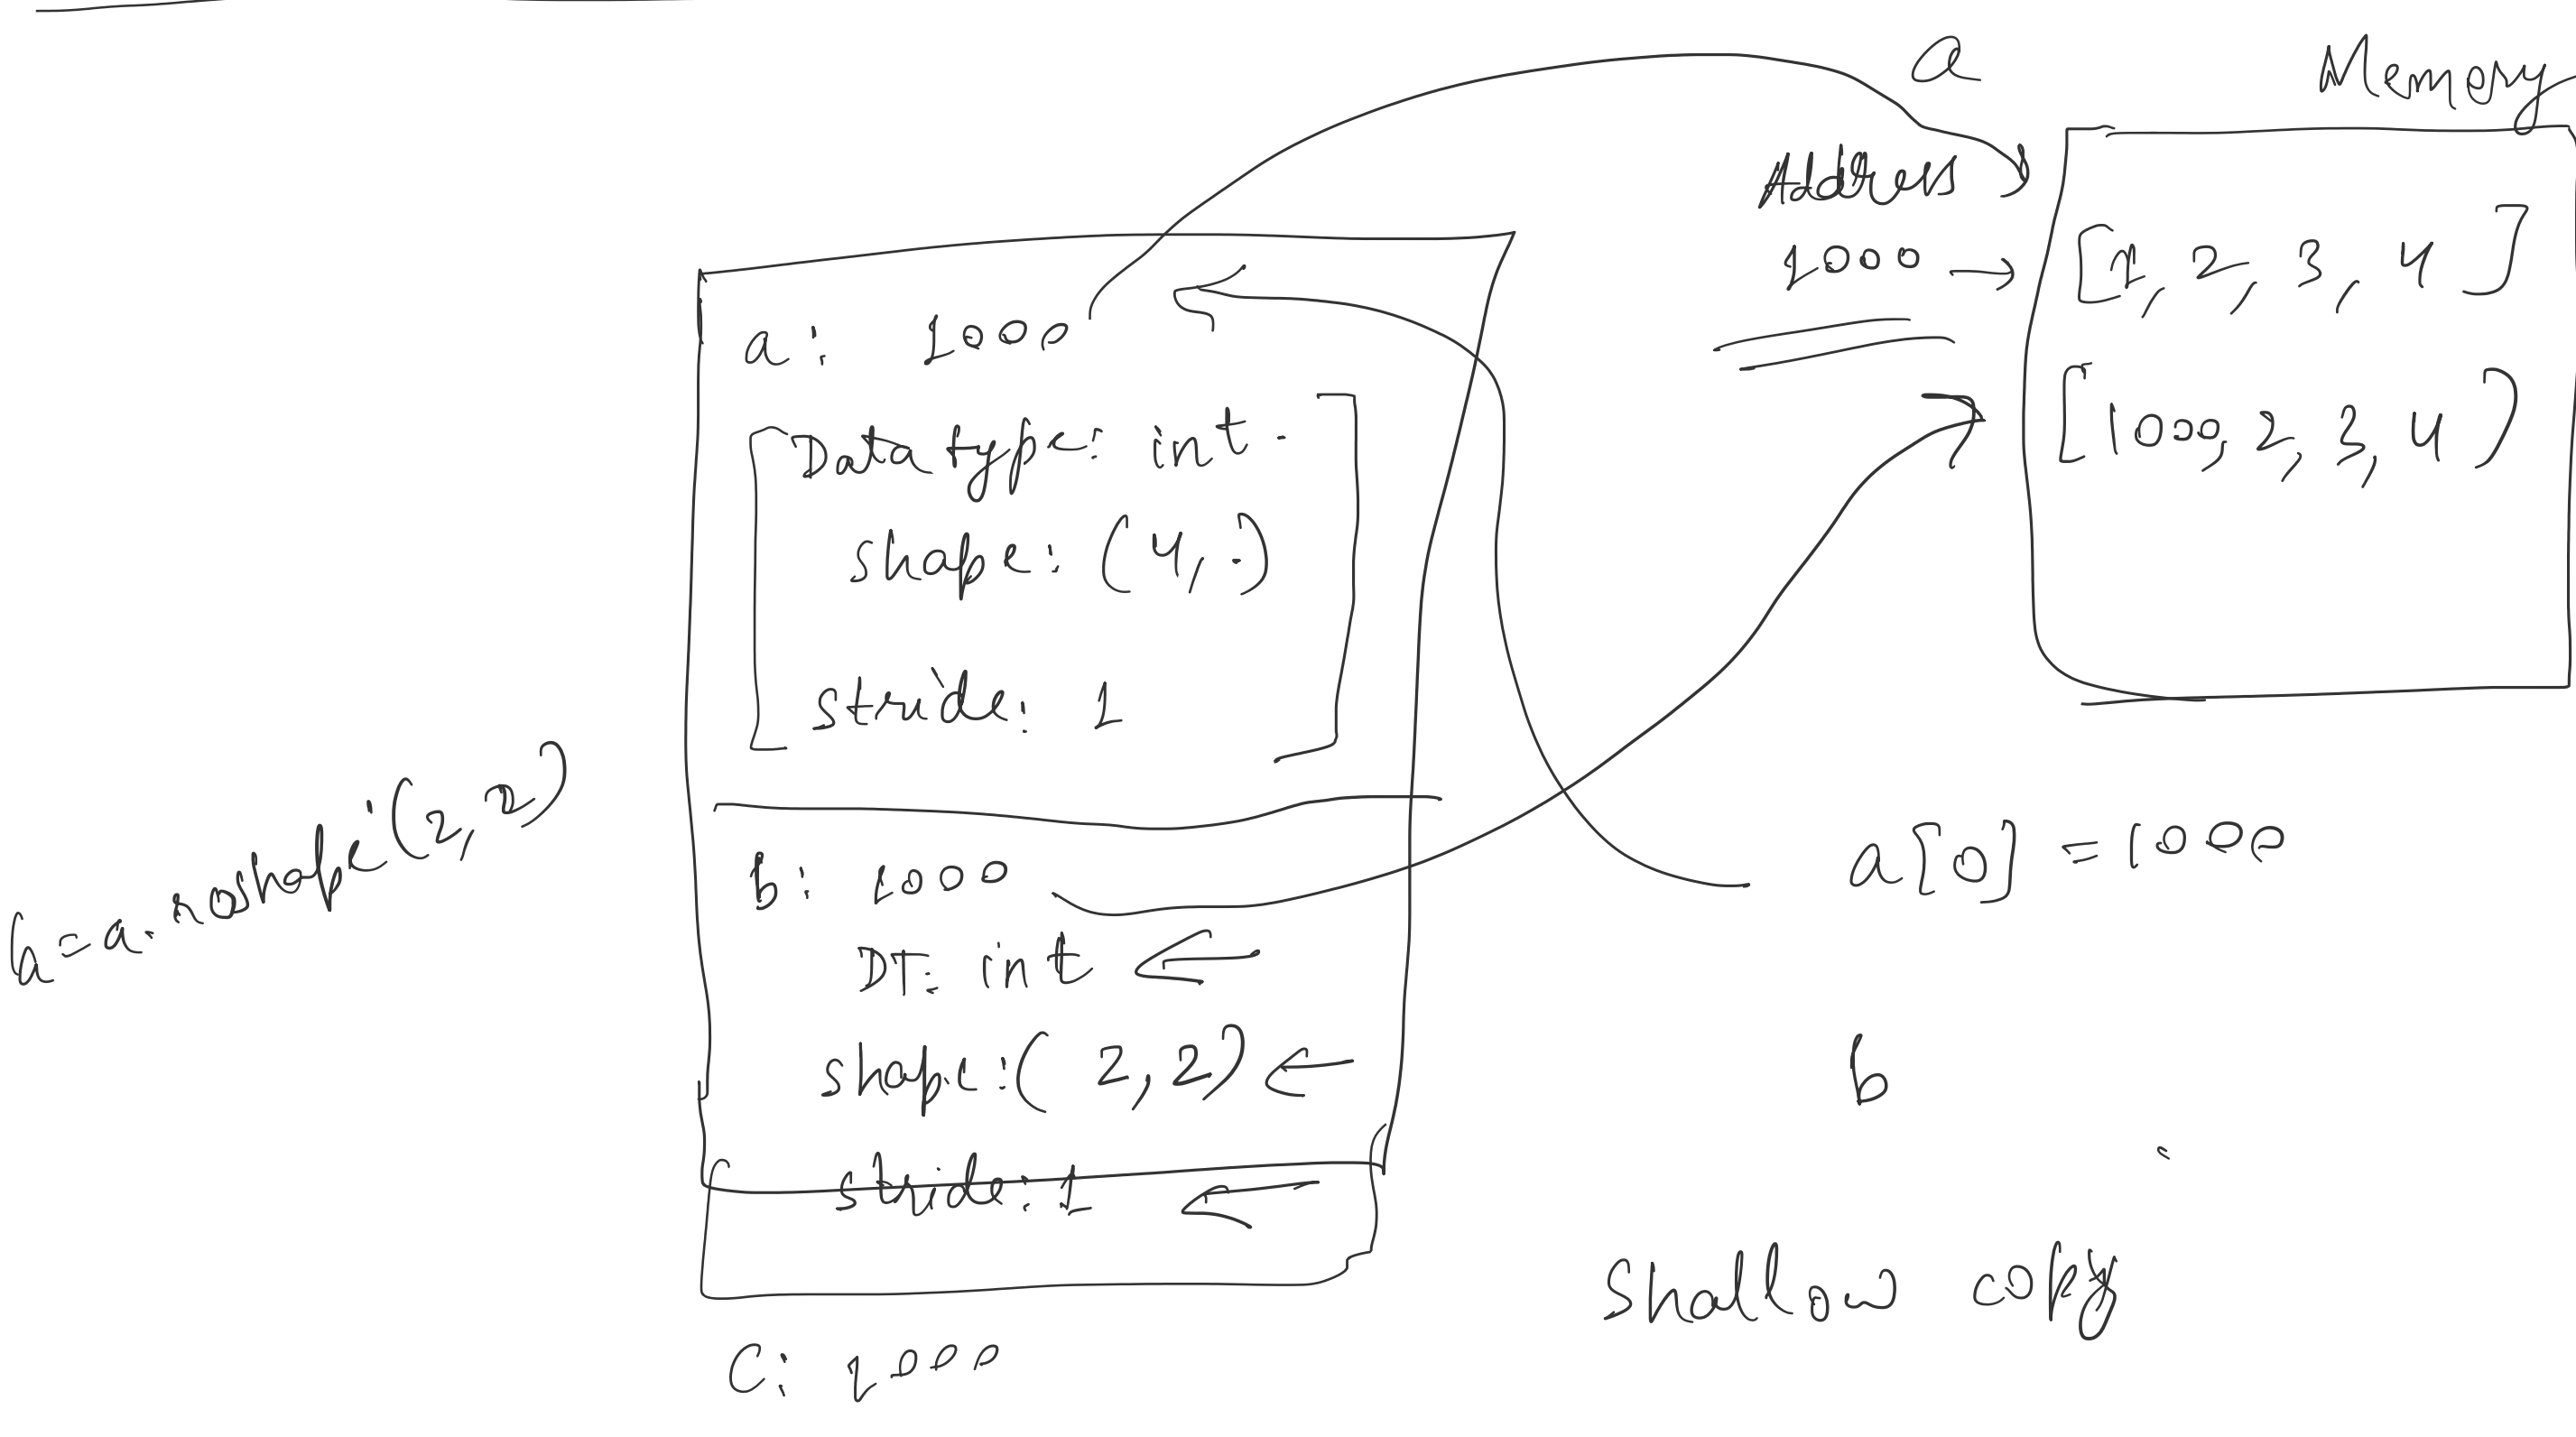 a
Memory
Address
1000 →
[1, 2, 3, 4]
[1000, 2, 3, 4)
a: 1000
Data type: int.
shape: (4, .)
stride: 1
b = a. reshape(2, 2)
b: 1000
DT: int
shape: (2, 2)
stride: 1
C: 1000
a[0] = 1000
b
Shallow copy